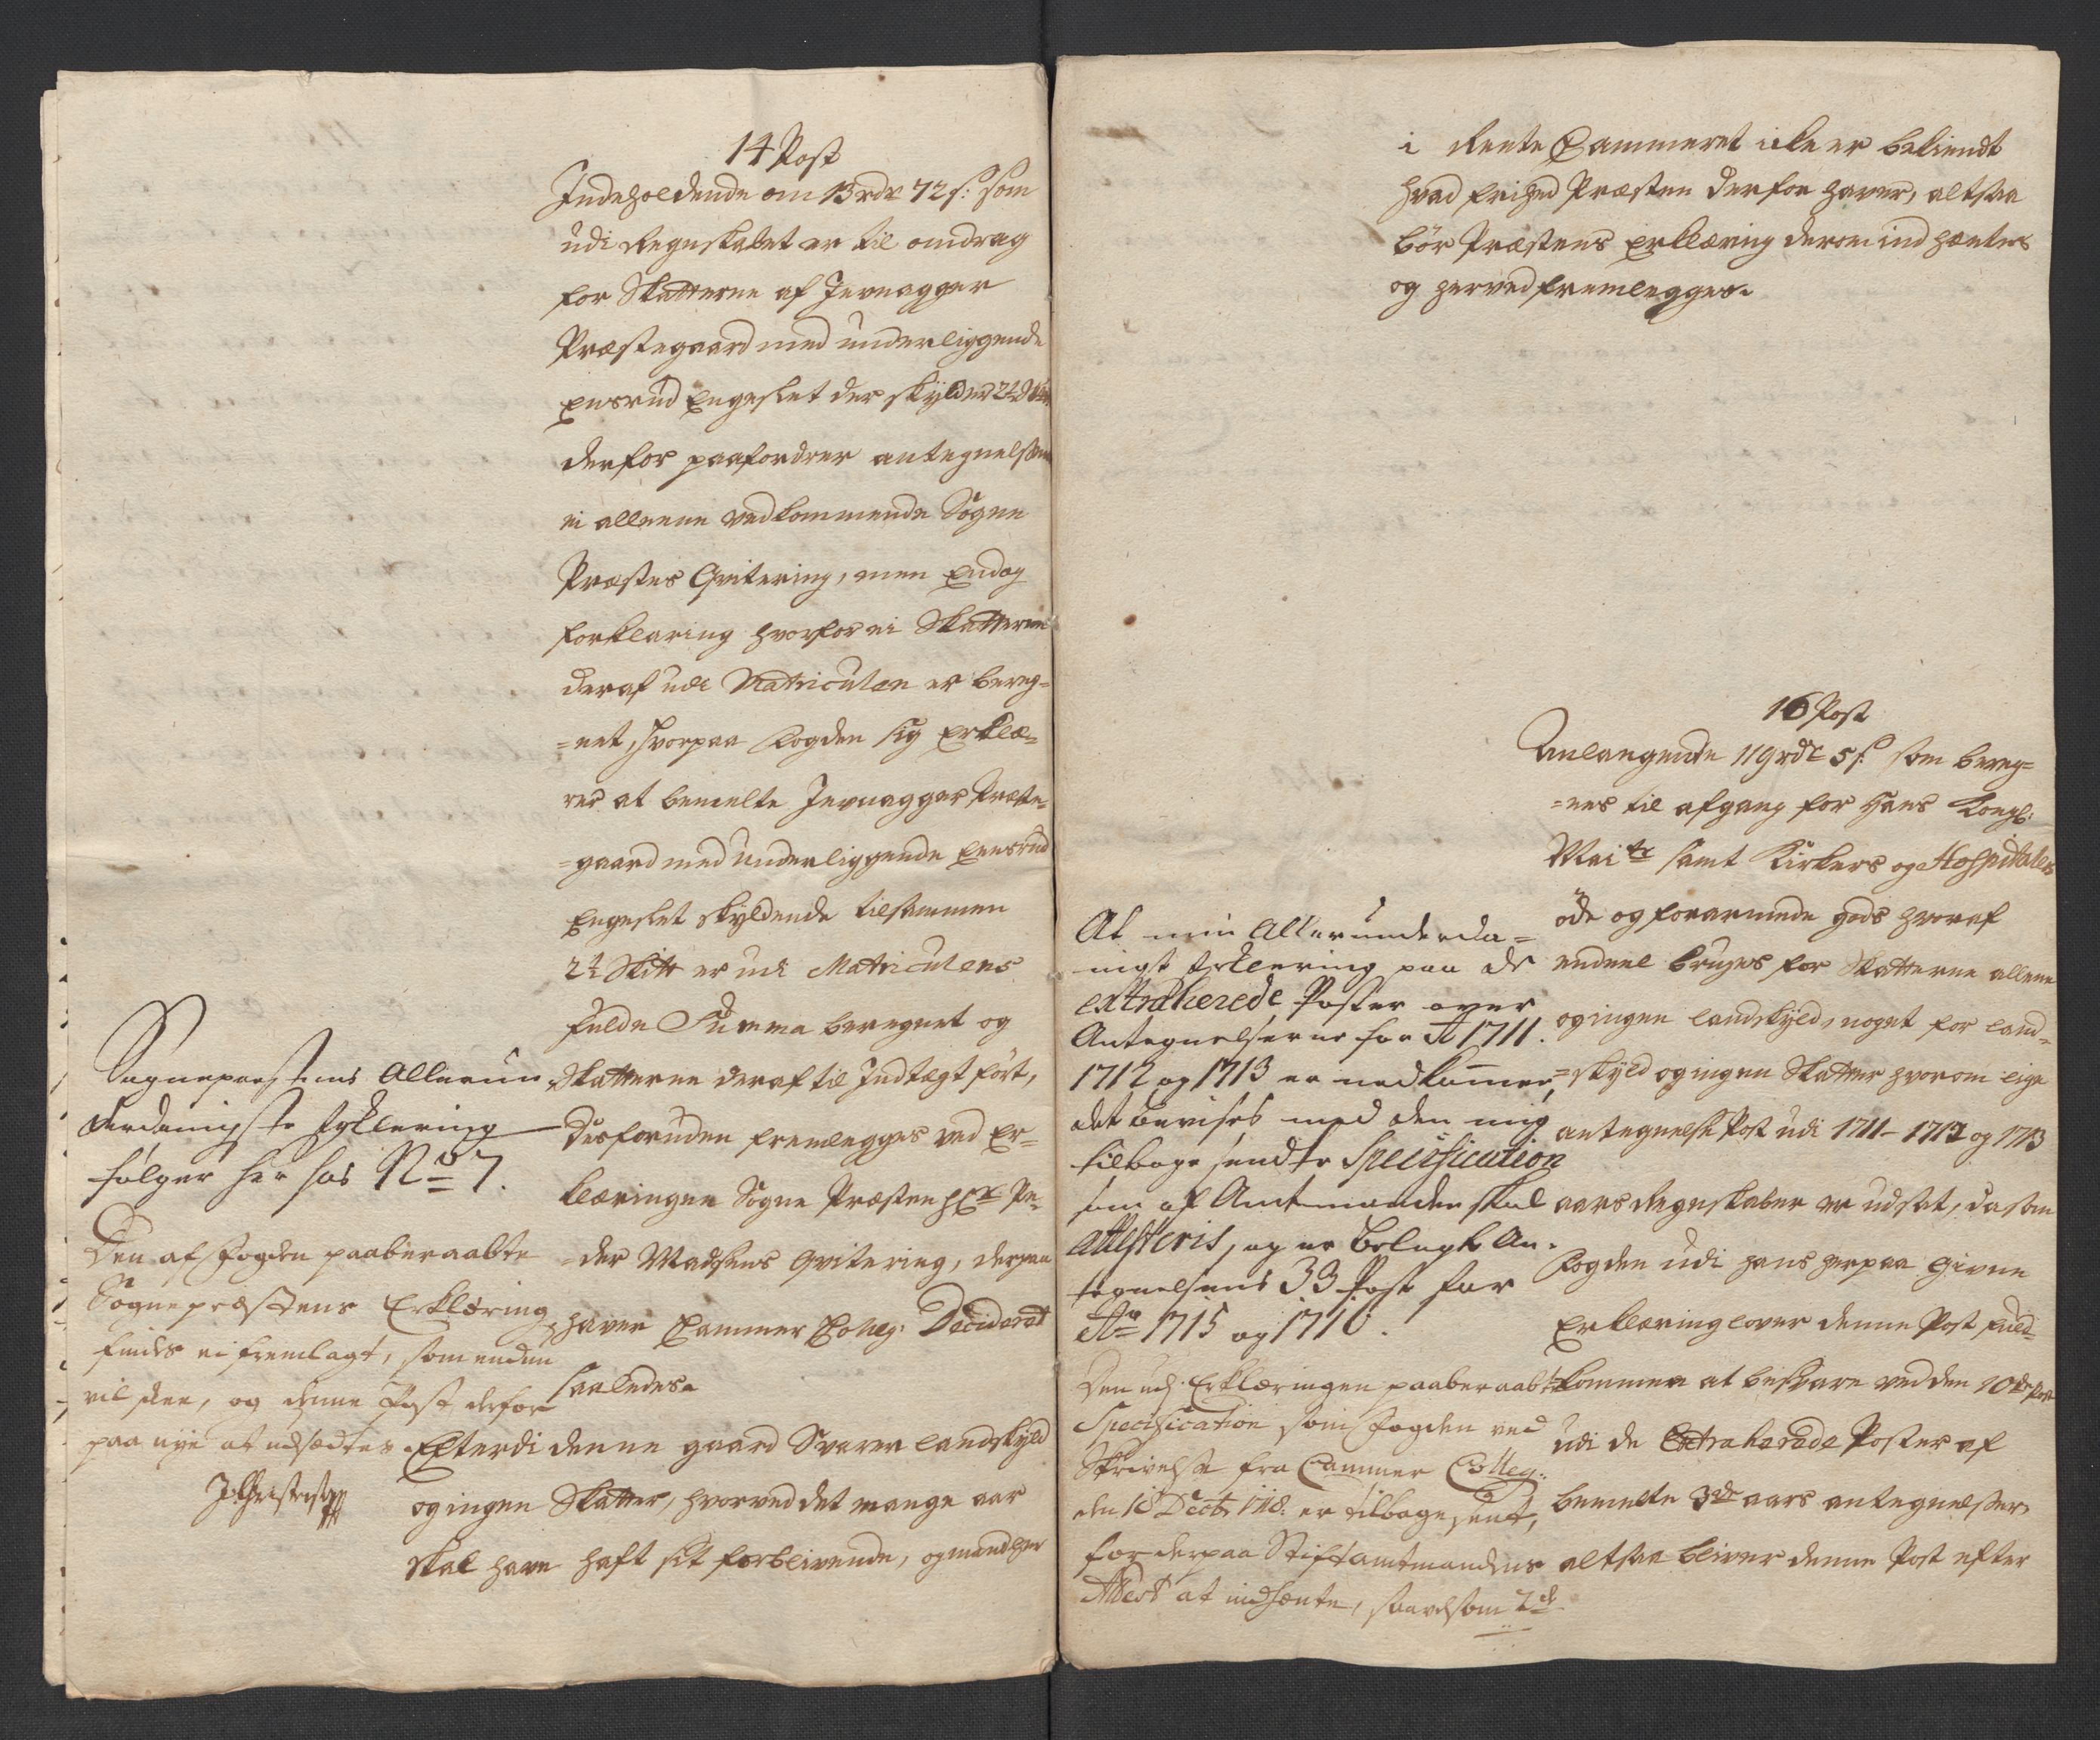 14 Post
Indeholdende om 13 rdr 72 s: som
udi Regnskabet er til omdrag
for Skatterne af Jevnagger
Præstegaard med underliggende
Ensrud Engeslet der skylder 2½
derfor paafordrer antegnelsen
ei alleene vedkommende Sogne
Præstes Qvitering, men endog
forklaring hvorfor ei Skatterne
deraf udi Matriculen er bereg=
=net, hvorpaa Fogden sig erklæ=
rer at bemelte Jevnagger Præste=
=gaard med underliggende Ensrud
Engeslet skyldende tilsammen
2½ Skt er udi Matriculens
fulde Summa beregnet og
Skatterne deraf til Indtegt ført,
Desforuden fremlegges ved Er=
klæringen Sogne Præsten Hr Pe=
=der Madsens Qvitering, derpaa
haver Cammer Colleg: Decideret
saaledes.
Efterdi denne gaard Svarer landskyld
og ingen Skatter, hvorved det mange aar
skal have haft sit forblivende, og mand her
Sognepræstens Allerun=
derdanigste Erklering
følger her hos No 7.
Den af Fogden paaberaabte
Sognepræstens Erklæring
findes ei fremlagt, som endnu
vil skee, og denne Post derfor
paa nye at udsættes
i Rente Cammeret icke er bekiendt
hvad frihed Præsten derfor haver, altsaa
bør Præstens Erklæring derom indhæntes
og herved fremlegges.
16 Post
Anlangende 119 rdr 5 s: som bereg=
=nes til afgang for Hans Kongl:
Maits samt Kirkers og Hospitalers
øde og forarmede gods hvoraf
endeel bruges for Skatterne allene
og ingen landskyld, noget for land=
=skyld og ingen Skatter hvorom lige
antegnelse Post udi 1711 - 1712 og 1713
aars Regnskaber er udsat, da som
Fogden udi hans herpaa givne
Erklæring lover denne Post fuld=
kommen at besvare ved den 10de Post
udi de Extraherede Poster af
bemelte 3de aars antegnelser,
altsaa bliver denne Post efter
At min Allerunderda=
nigst Erklering paa de
extraherede Poster over
Antegnelserne for Ao 1711.
1712 og 1713 er nedkommen,
det bevises med den mig
tilbage sendte Specification
som af Amtmanden skal
attesteris, og er belagt An=
tegnelsens 33 Post for
Ao 1715 og 1716.
Den udj Erklæringen paaberaabte
Specification som Fogden ved
Skrivelse fra Cammer Colleg:
den 16 Decbr 1718. er tilbagesent,
for derpaa Stiftamtmandens
Attest at indhente, saavelsom 2de